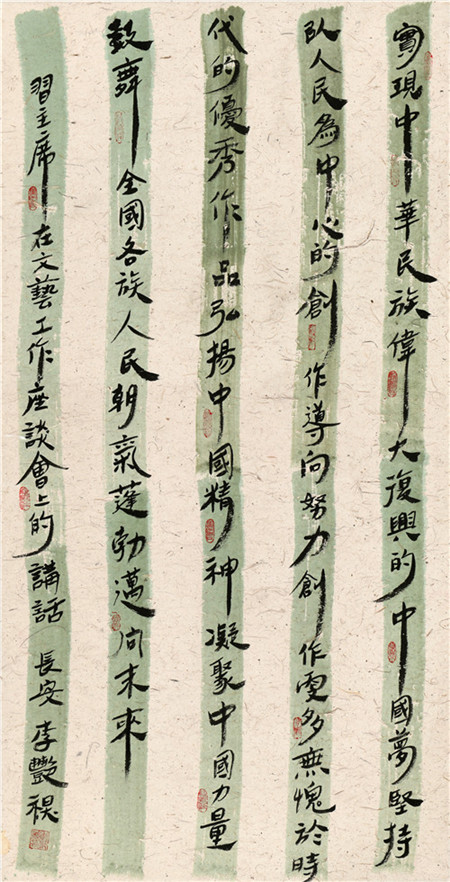 實現中華民族偉大復興的中國夢堅持
以人民為中心的創作導向努力創作更多無愧於時
代的優秀作品弘揚中國精神凝聚中國力量
鼓舞全國各族人民朝氣蓬勃邁向未來
習主席在文藝工作座談會上的講話 長安李艷